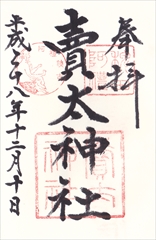 奉拝
賣太神社
平成二十八年十二月十日